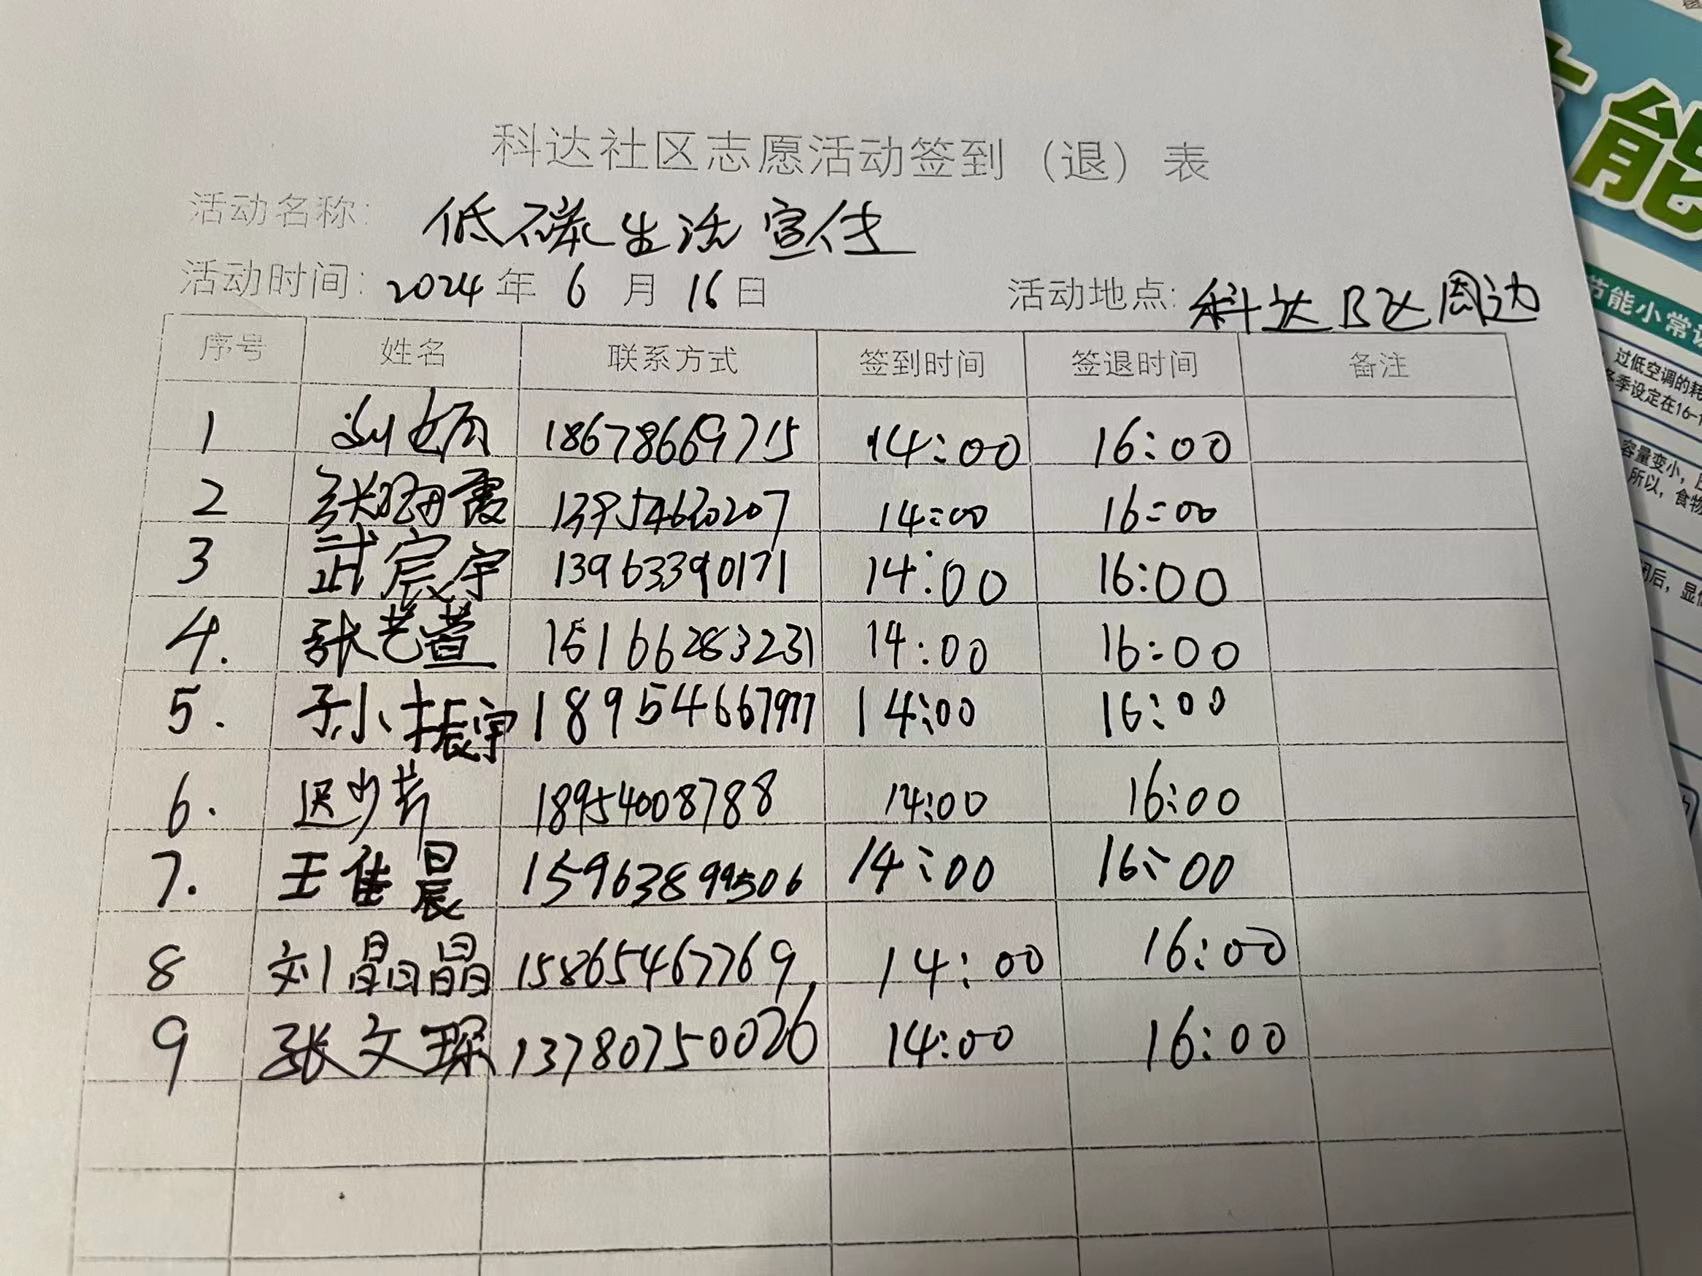 科达社区志愿活动签到（退）表
活动名称: 低碳生活宣传
活动时间: 2024年 6月 16日 活动地点: 科达B区周边
序号 姓名 联系方式 签到时间 签退时间 备注
1 刘 18678669715 14:00 16:00
2 张 霞 13954620207 14:00 16:00
3 武宸宇 13963390171 14:00 16:00
4. 张艺萱 15166283231 14:00 16:00
5. 孙振宇 18954667977 14:00 16:00
6. 迟少芹 18954008788 14:00 16:00
7. 王佳晨 15963899506 14:00 16:00
8 刘晶晶 15865467769 14:00 16:00
9 张文琛 13780750026 14:00 16:00
能
节能小常
过低空调的耗
季设定在16-1
容量变小，
所以，食物